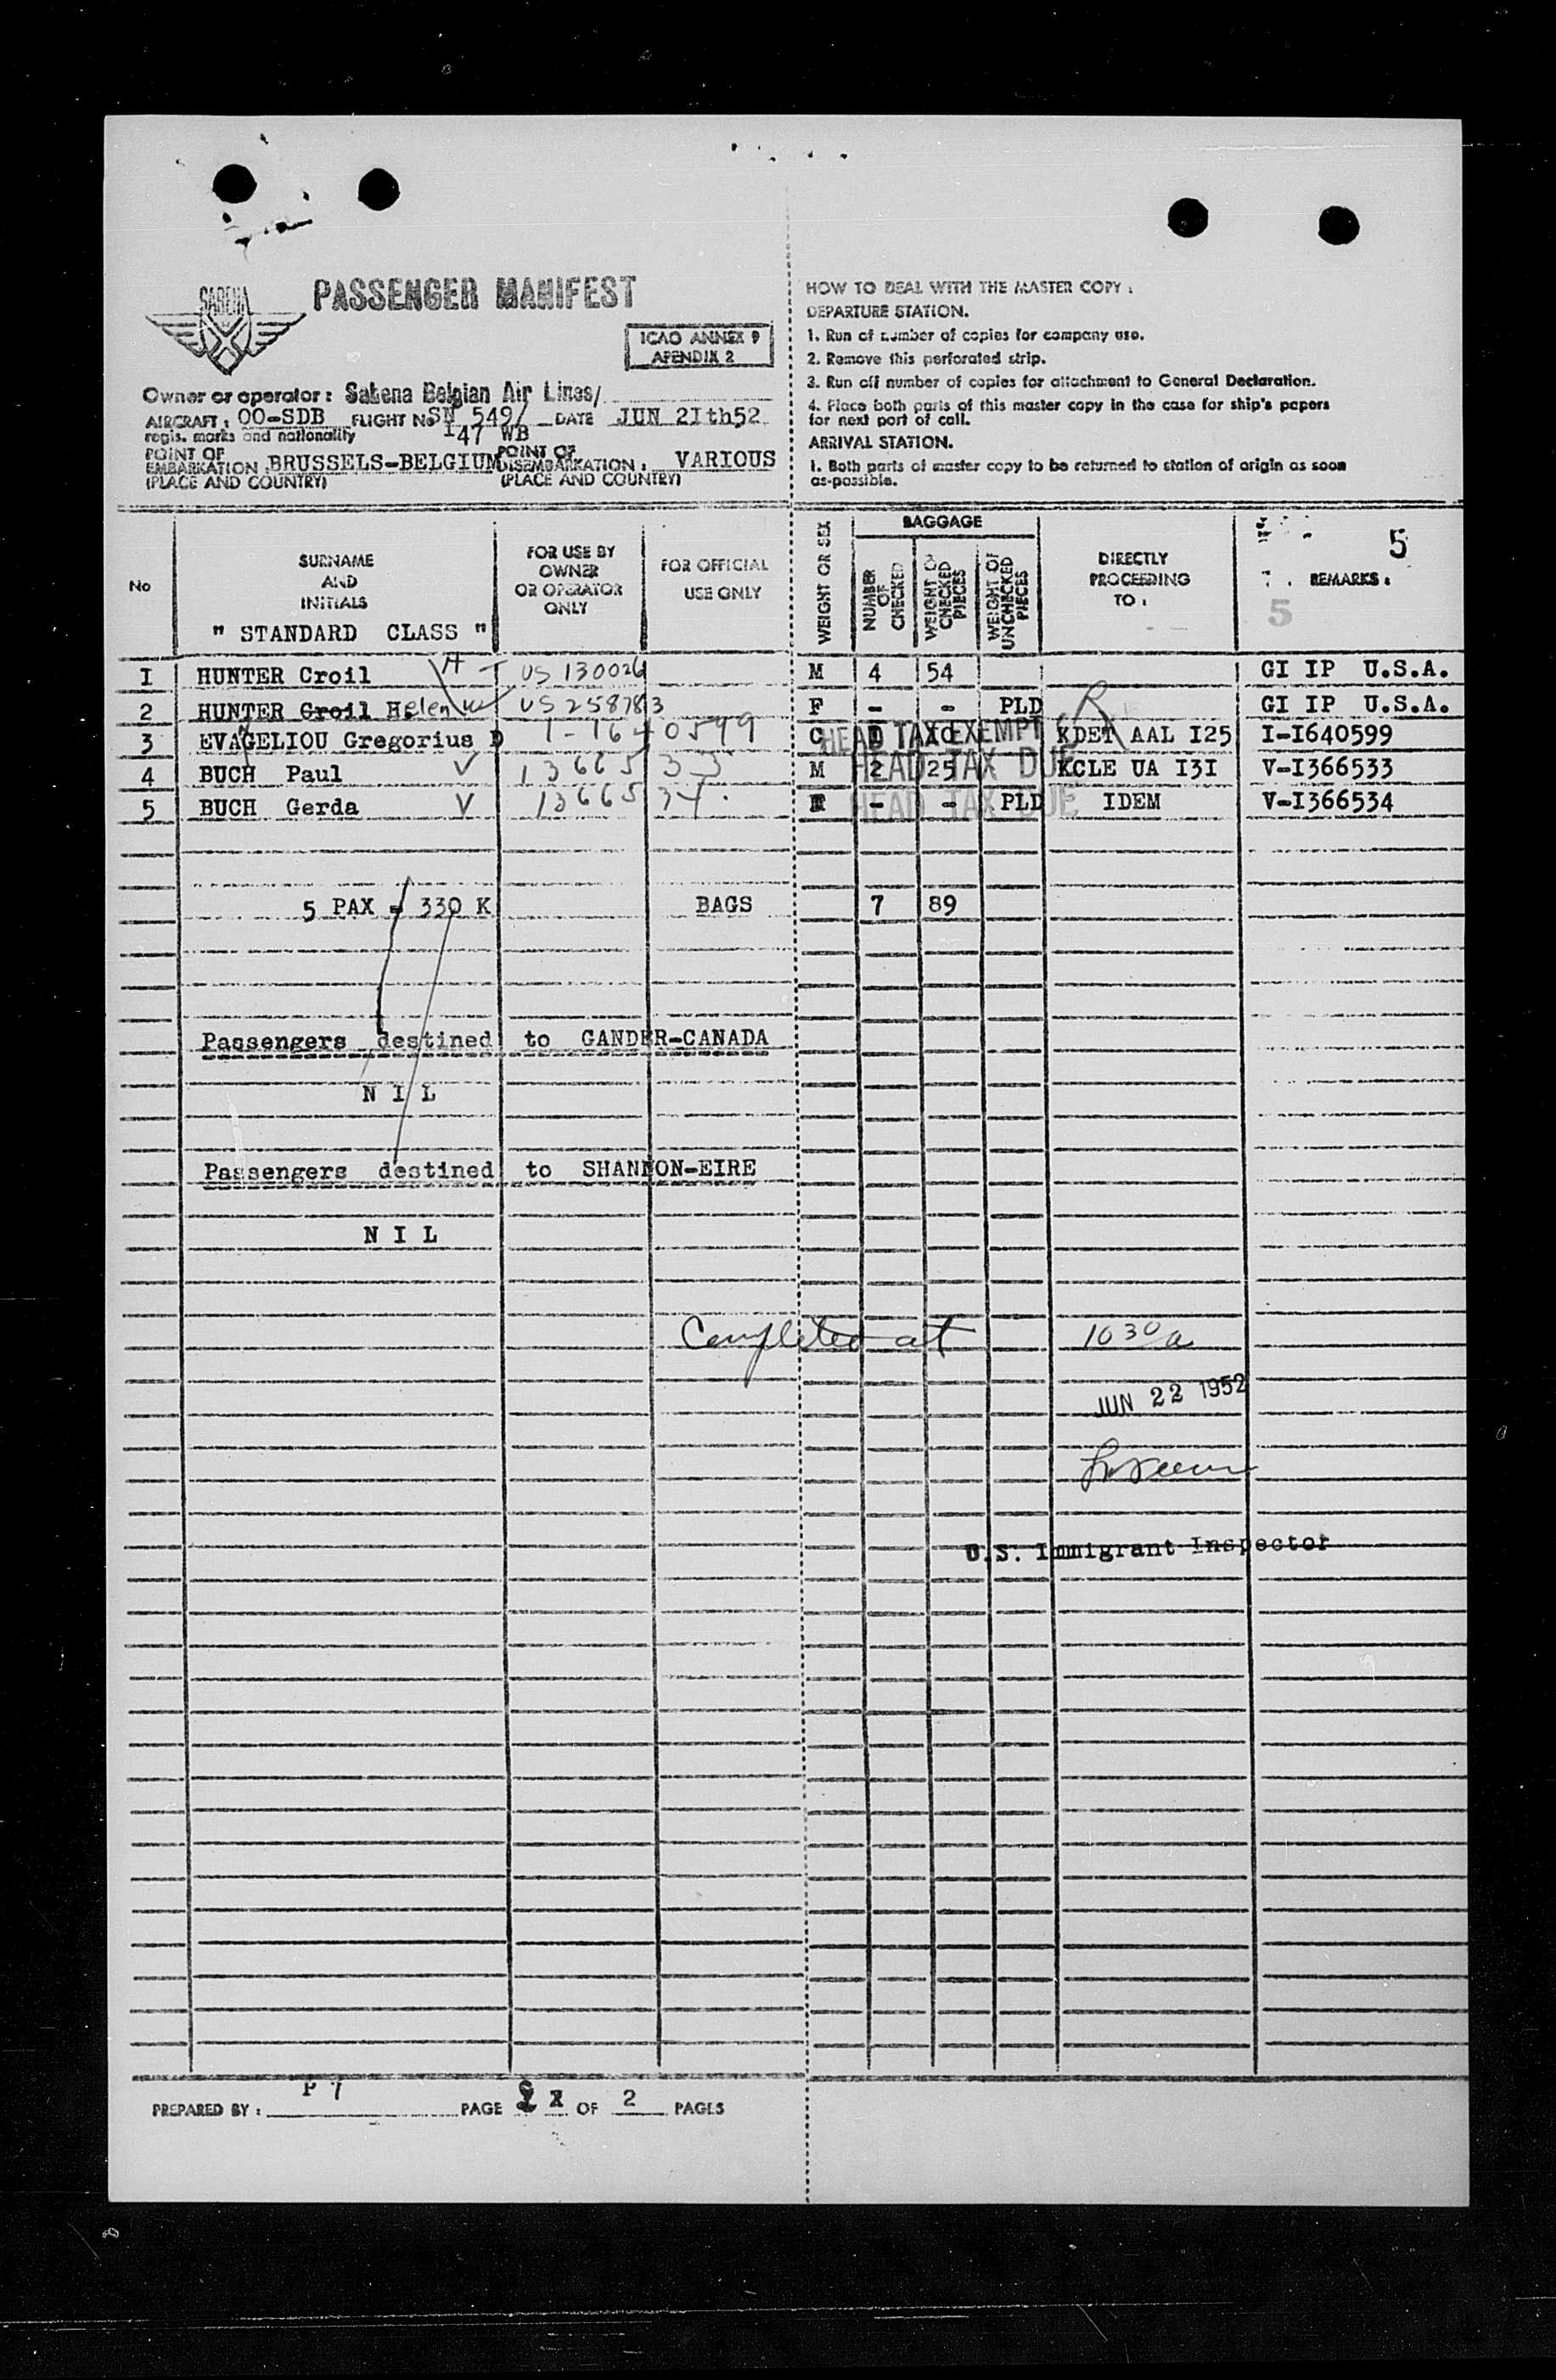 SABENA
PASSENGER MANIFEST
ICAO ANNEX 9
APENDIX 2
Owner or operator : Sabena Belgian Air Lines/
AIRCRAFT : OO-SDB FLIGHT No SN 549/ DATE JUN 2Ith52
regis. marks and nationality I47 WB
POINT OF EMBARKATION : BRUSSELS-BELGIUM POINT OF DISEMBARKATION : VARIOUS
(PLACE AND COUNTRY) (PLACE AND COUNTRY)
HOW TO DEAL WITH THE MASTER COPY :
DEPARTURE STATION.
1. Run of number of copies for company use.
2. Remove this perforated strip.
3. Run off number of copies for attachment to General Declaration.
4. Place both parts of this master copy in the case for ship's papers
for next port of call.
ARRIVAL STATION.
1. Both parts of master copy to be returned to station of origin as soon
as-possible.
No
SURNAME
AND
INITIALS
" STANDARD CLASS "
FOR USE BY
OWNER
OR OPERATOR
ONLY
FOR OFFICIAL
USE ONLY
WEIGHT OR SEX
BAGGAGE
NUMBER
OF
CHECKED
WEIGHT OF
CHECKED
PIECES
WEIGHT OF
UNCHECKED
PIECES
DIRECTLY
PROCEEDING
TO :
5
REMARKS :
5
I HUNTER Croil H US 130026 M 4 54 GI IP U.S.A.
2 HUNTER Croil Helen W US 258783 F - - PLD GI IP U.S.A.
3 EVAGELIOU Gregorius D 1-1640599 C I IO KDET AAL I25 I-I640599
HEAD TAX EXEMPT
4 BUCH Paul V 1366533 M 2 25 KCLE UA I3I V-I366533
HEAD TAX DUE
5 BUCH Gerda V 1366534 F - - PLD IDEM V-I366534
HEAD TAX DUE
5 PAX - 330 K BAGS 7 89
Passengers destined to GANDER-CANADA
N I L
Passengers destined to SHANNON-EIRE
N I L
Completed at 1030 a
JUN 22 1952
U.S. Immigrant Inspector
P 7
PREPARED BY : PAGE 2 OF 2 PAGES